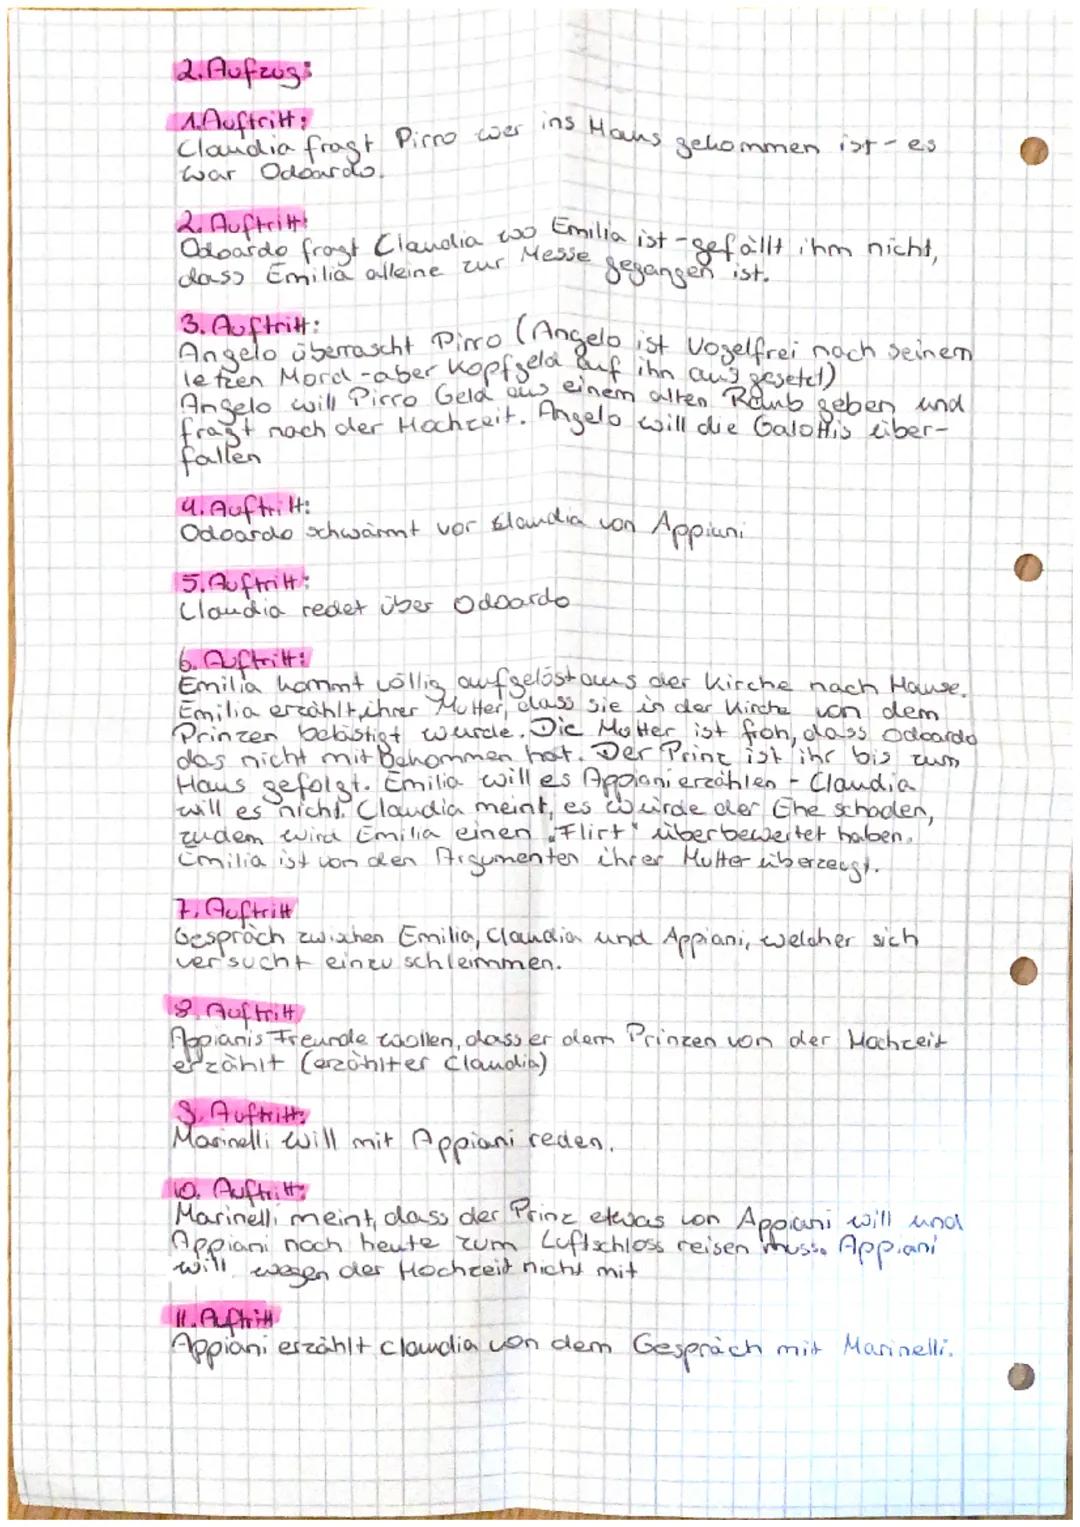 2. Aufzug:
1. Auftritt:
Claudia fragt Pirro wer ins Haus gekommen ist - es
war Odoardo.
2. Auftritt:
Odoardo fragt Claudia wo Emilia ist - gefällt ihm nicht,
dass Emilia alleine zur Messe gegangen ist.
3. Auftritt:
Angelo überrascht Pirro (Angelo ist Vogelfrei nach seinem
letzen Mord - aber Kopfgeld auf ihn aus gesetzt)
Angelo will Pirro Geld aus einem alten Raub geben und
fragt nach der Hochzeit. Angelo will die Galottis über-
fallen
4. Auftritt:
Odoardo schwärmt vor Claudia von Appiani
5. Auftritt:
Claudia redet über Odoardo
6. Auftritt:
Emilia kommt völlig aufgelöst aus der Kirche nach Hause.
Emilia erzählt ihrer Mutter, dass sie in der Kirche von dem
Prinzen belästigt wurde. Die Mutter ist froh, dass Odoardo
das nicht mitbekommen hat. Der Prinz ist ihr bis zum
Haus gefolgt. Emilia will es Appiani erzählen - Claudia
will es nicht. Claudia meint, es würde der Ehe schaden,
zudem wird Emilia einen „Flirt" überbewertet haben.
Emilia ist von den Argumenten ihrer Mutter überzeugt.
7. Auftritt
Gespräch zwischen Emilia, Claudia und Appiani, welcher sich
versucht einzuschleimmen.
8. Auftritt
Appianis Freunde wollen, dass er dem Prinzen von der Hochzeit
erzählt (erzählt er Claudia)
9. Auftritt:
Marinelli will mit Appiani reden.
10. Auftritt:
Marinelli meint, dass der Prinz etwas von Appiani will und
Appiani noch heute zum Luftschloss reisen muss. Appiani
will wegen der Hochzeit nicht mit
11. Auftritt
Appiani erzählt Claudia von dem Gespräch mit Marinelli.